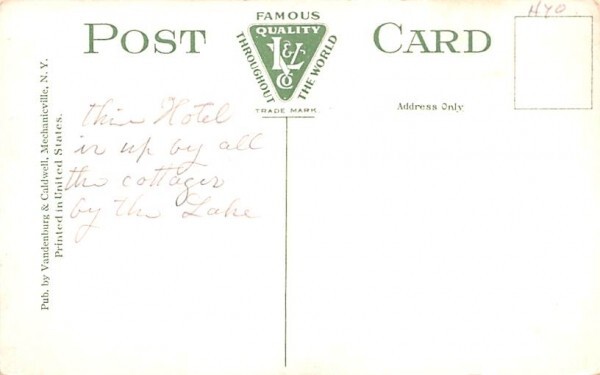 POST CARD
FAMOUS
QUALITY
THROUGHOUT
THE WORLD
K&L
Co
TRADE MARK
Address Only
HYO
this Hotel
is up by all
the cottages
by the Lake
Pub. by Vandenburg & Caldwell, Mechanicville, N. Y.
Printed in United States.